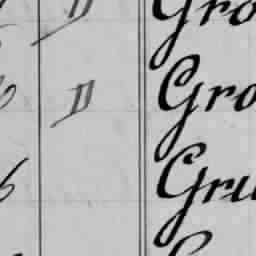 D Gro
D Gro
6 Gru